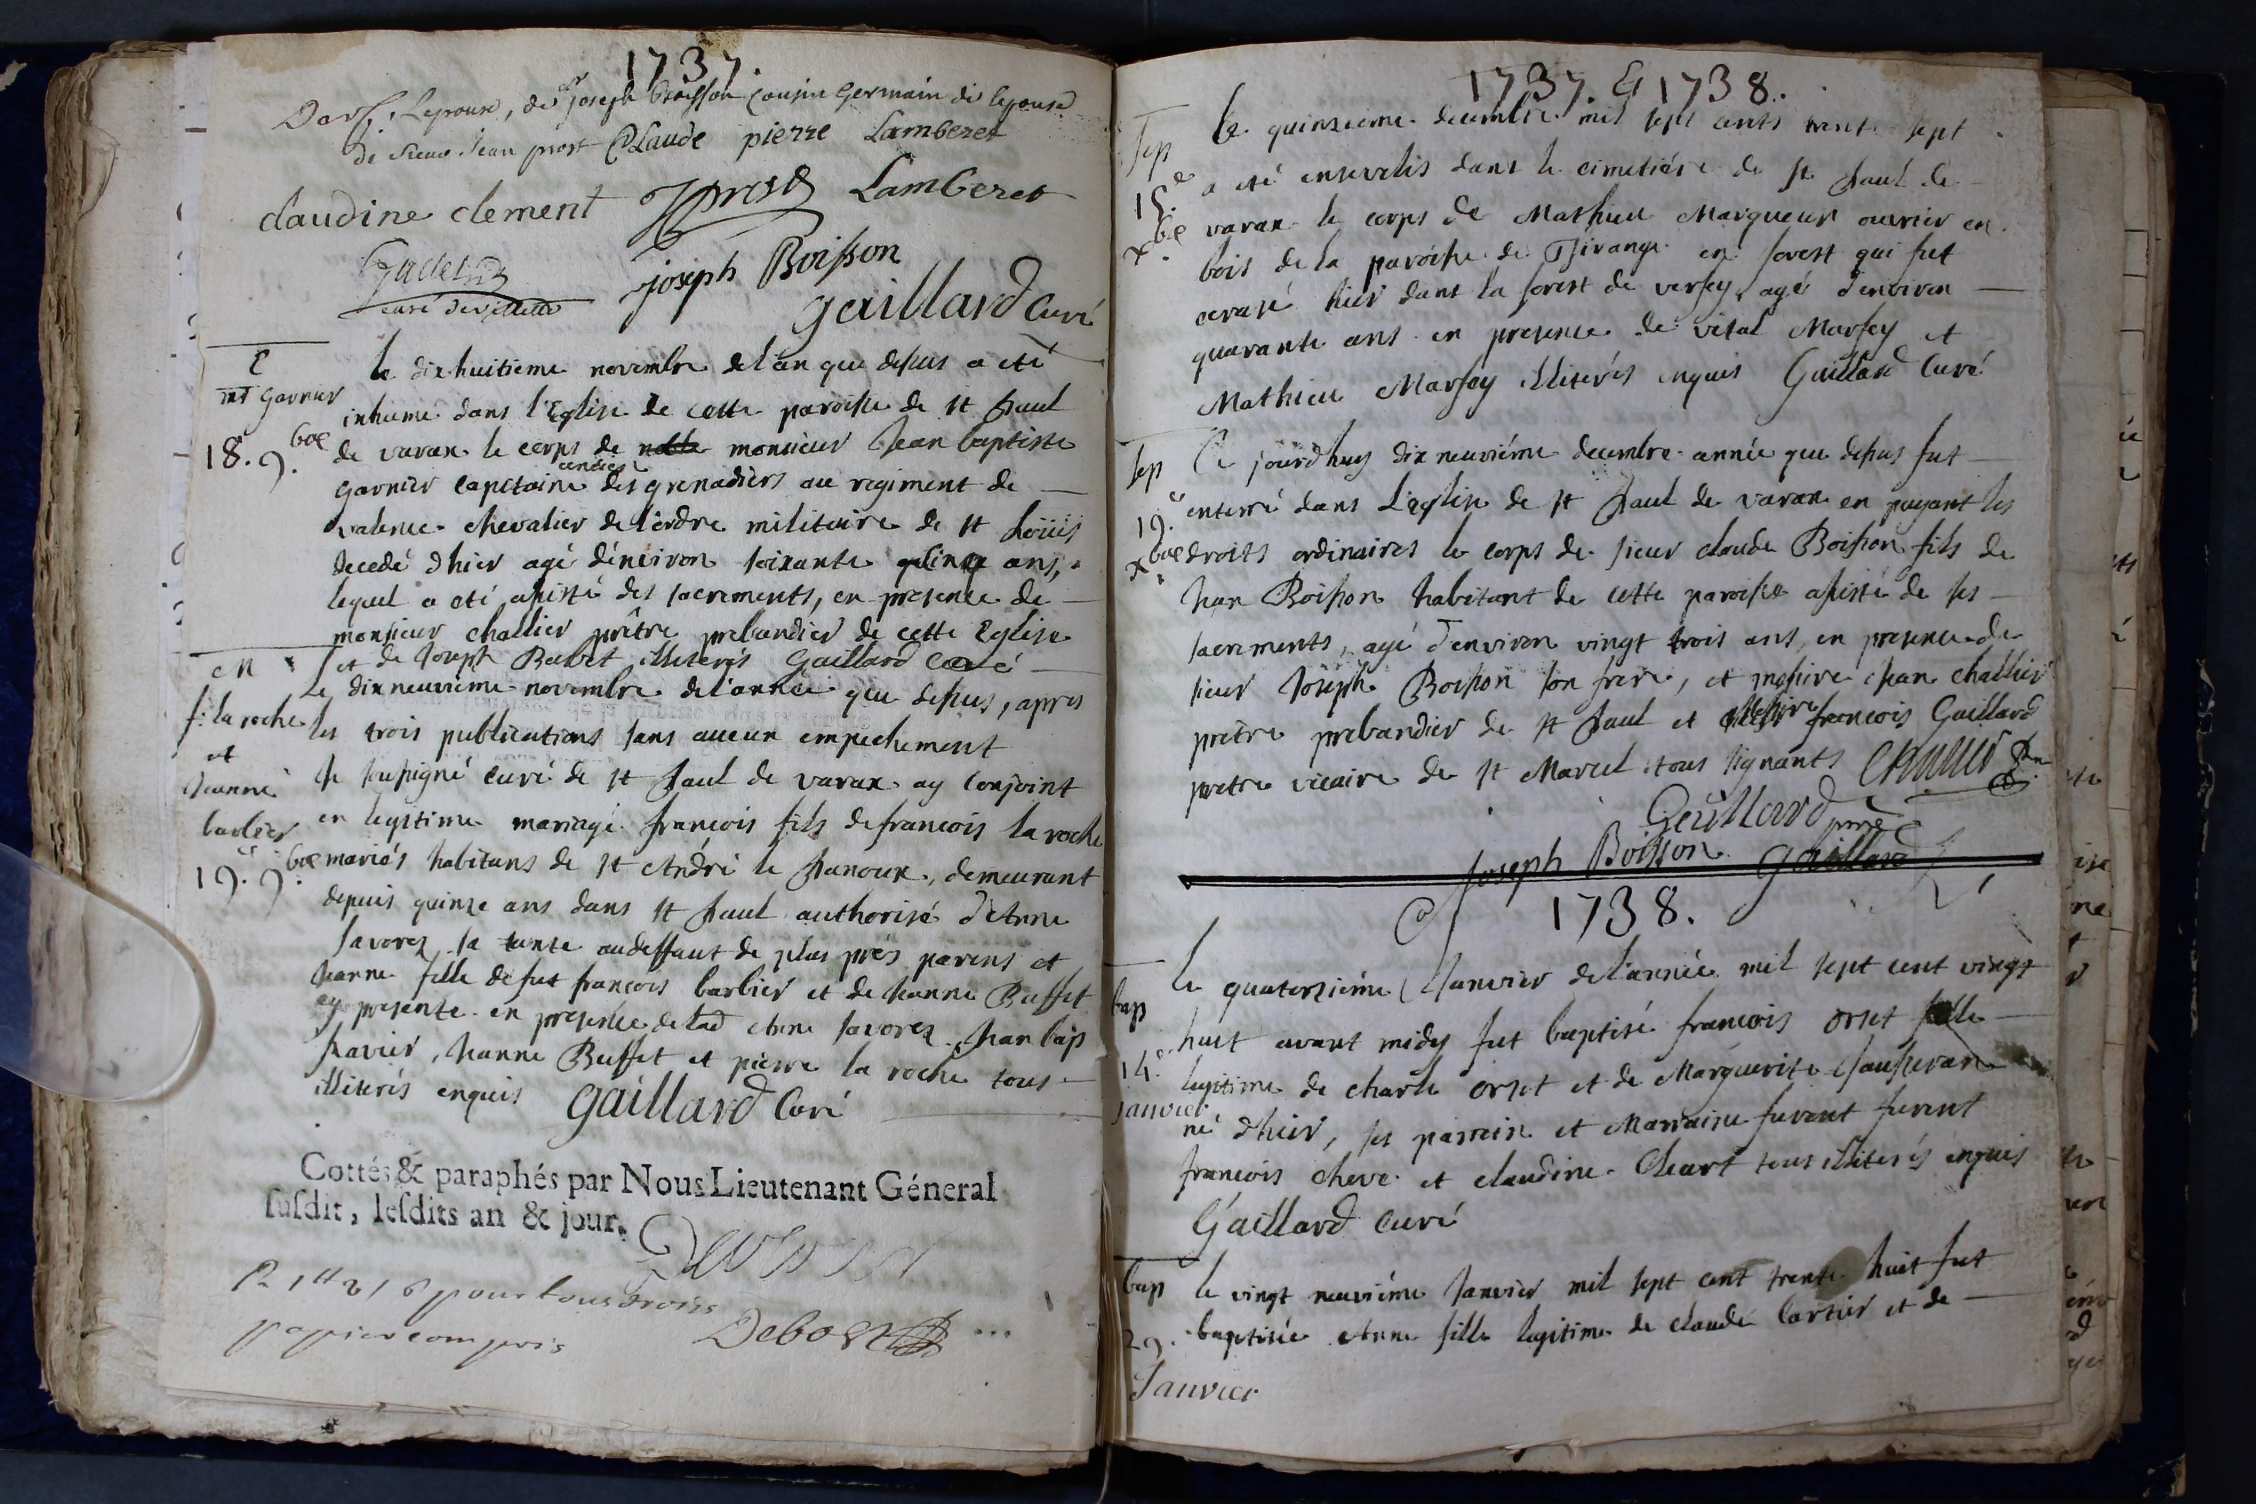 1737.
Lepouse, de sr joseph Boisson Cousin Germain de lepouse
de sieur Jean prost Claude pierre Lamberet
claudine clement JProst Lamberet
joseph Boisson
curé de villette
gaillard Curé
le dix huitieme novembre de l'an que dessus a eté
mr Garnier
inhumé dans l'Eglise de cette paroisse de st paul
18. 9.bre
de varax le corps de noble monsieur Jean baptiste
ancien
garnier capitaine des grenadiers au regiment de
valence chevalier de l'ordre militaire de st Loüis
decedé d'hier agé d'environ soixante quinze ans,
lequel a eté assisté des sacrements, en presence de
monsieur challier prêtre prebandier de cette Eglise
et de Joseph Buvet illiterés Gaillard Curé
M
le dix neuvieme novembre de l'année que dessus, apres
f. la roche
les trois publications sans aucun empechement
et
Je soussigné curé de st paul de varax ay conjoint
Jeanne
en legitime mariage francois fils de francois la roche
barbier
mariés habitans de st André le panoux, demeurant
19. 9.bre
depuis quinze ans dans st paul authorisé d'Anne
savorez sa tante au deffaut de plus près parens et
Jeanne fille de fut francois barbier et de Jeanne Buffet
ay presente en presence de lad Anne savorez Jean bap
pavier, Jeanne Buffet et pierre la roche tous
illiterés enquis Gaillard Curé
Cottés & paraphés par Nous Lieutenant Géneral
susdit, lesdits an & jour.
pour tous droits
papier compris Debost
1737. & 1738.
Sep
le quinzieme decembre mil sept cents trente sept
15.e
a eté ensevelis dans le cimetiére de st paul de
xbre
varax le corps de Mathieu Marqueur ouvrier en
bois de la paroisse de Tsirange en forest qui fut
ecrasé hier dans la forest de versey, agé d'environ
quarante ans en presence de vital Marsey et
Mathieu Marsey illiterés enquis Gaillard Curé
Sep
Ce jourd'huy dix neuviéme decembre année que dessus fut
19.e
enterré dans L'eglise de st paul de varax en payant les
xbre
droits ordinaires le corps de sieur claude Boisson fils de
Jean Boisson habitant de cette paroisse assisté de ses
sacrements, agé d'environ vingt trois ans, en presence de
sieur Joseph Boisson son frere, et messire Jean challier
prêtre prebandier de st paul et messire francois Gaillard
pretre vicaire de st Marcel tous signants
Gaillard
Joseph Boisson Gaillard
1738.
bap
le quatorziéme Janvier de l'année mil sept cent vingt
huit avant midy fut baptisé francois orset
14.e
legitime de charle orset et de Marguerite Jausseran
Janvier
né d'hier, ses parrein et Marraine furent furent
francois cheve et claudine Cleart tous illiterés enquis
Gaillard curé
bap
le vingt neuviéme Janvier mil sept cent trente huit fut
29.
baptisée Anne fille legitime de claude Cartier et de
Janvier